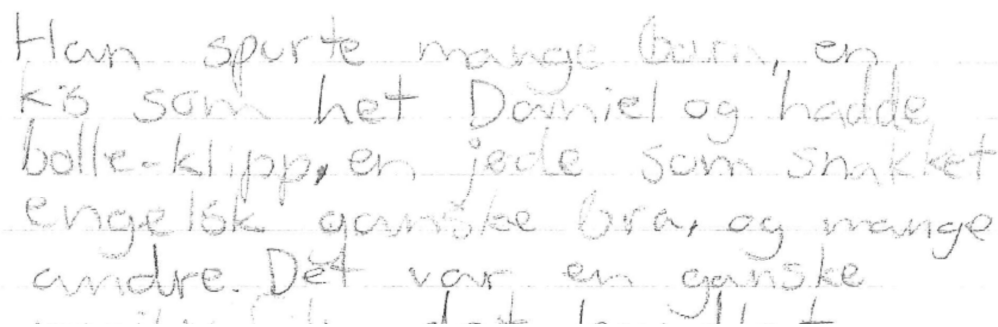 Han spurte mange barn, en
kis som het Daniel og hadde
bolle-klipp, en jøde som snakket
engelsk ganske bra, og mange
andre. Det var en ganske
det handlet